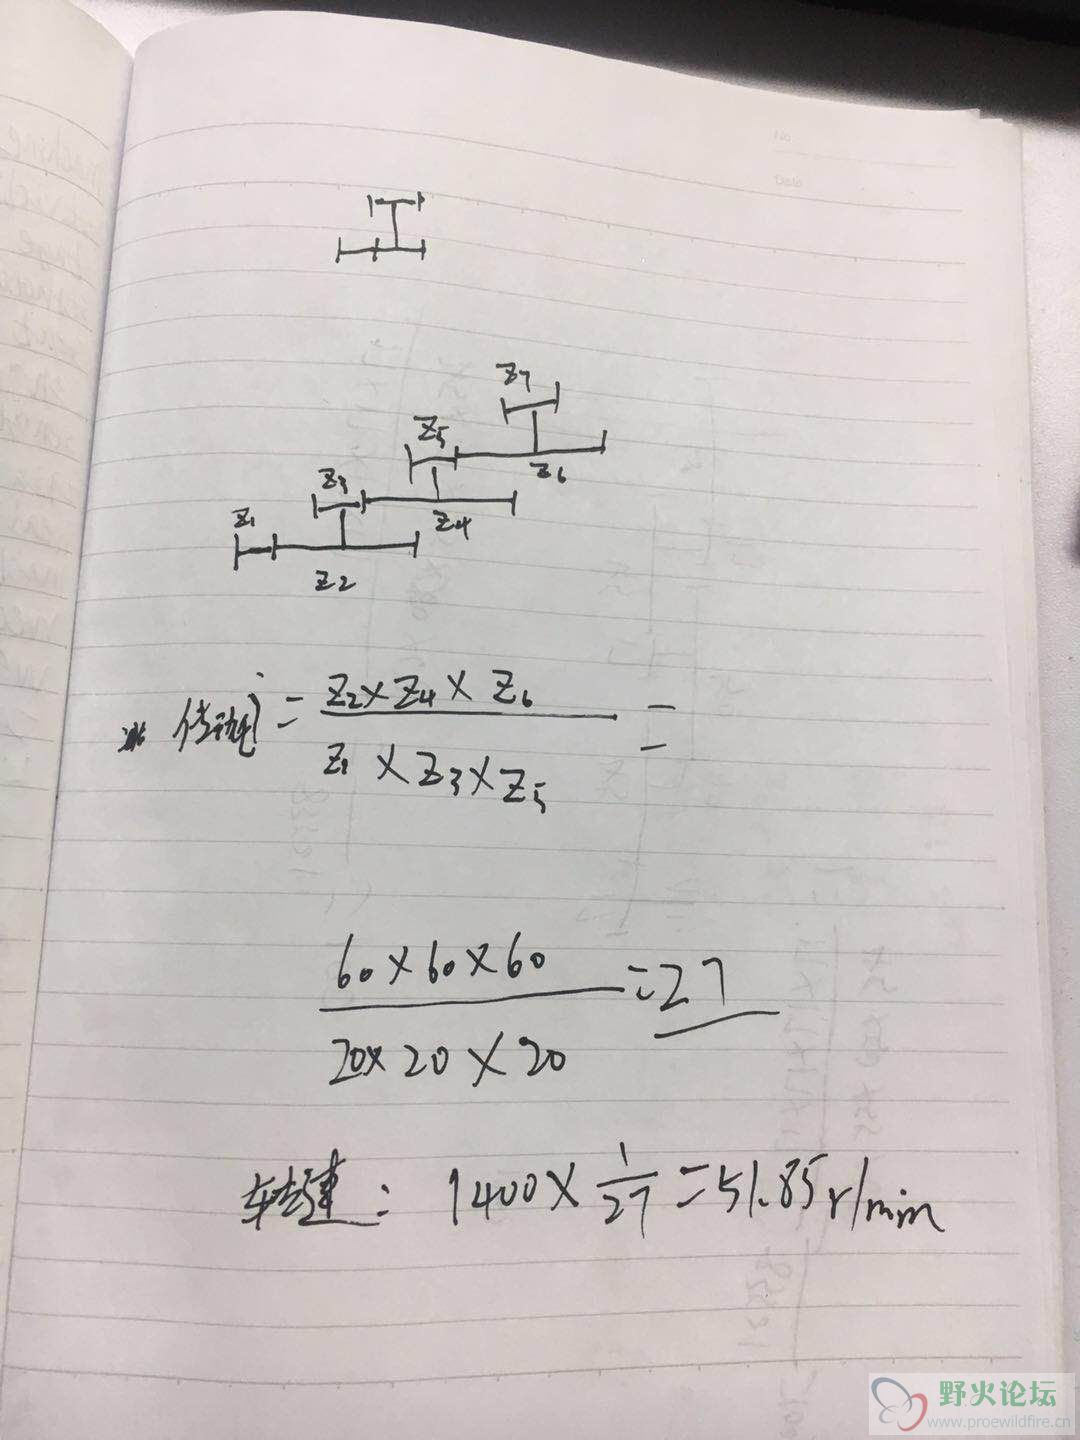 Z7
Z5
Z6
Z3
Z4
Z1
Z2
※ 传动比 = Z2×Z4×Z6 / Z1×Z3×Z5 =
60×60×60 / 20×20×20 = 27
转速: 1400 × 1/27 = 51.85 r/min
野火论坛
www.proewildfire.cn